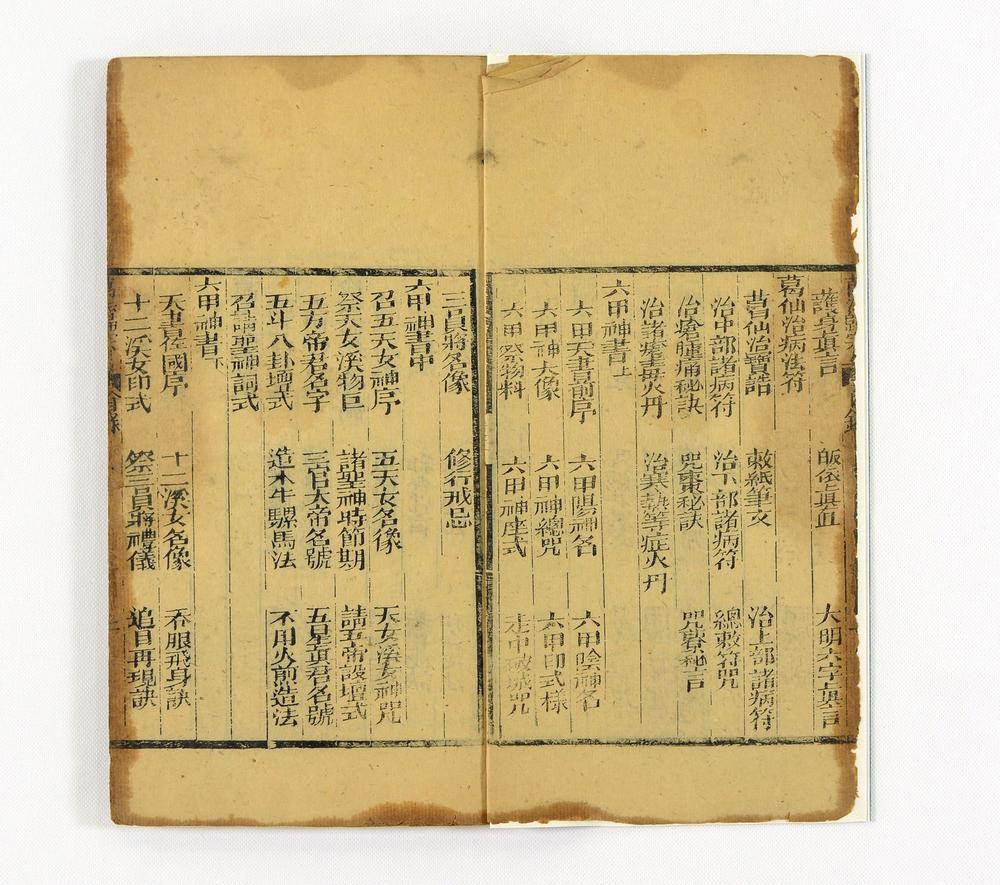 護身真言 皈依真宣 大明六字真言
葛仙治病法符
葛仙治寶誥 敕紙筆文 治上部諸病符
治中部諸病符 治下部諸病符 總敕符咒
治瘡腫痛秘訣 咒棗秘訣 咒饗秘言
治諸瘡毒火丹 治寒熱等症火丹
六甲神書上
六甲天書前序 六甲陽神名 六甲陰神名
六甲神大像 六甲神總咒 六甲印式樣
六甲祭物料 六甲神座式 走中破城咒
三員將名像 修行戒忌
六甲神書中
召五天女神序 五天女名像 天女溪女神咒
祭天女溪物巨 諸聖神時節期 請五帝設壇式
五方帝君名字 三官大帝名號 五星真君名號
五斗八卦壇式 造木牛騾馬法 不用火煎造法
召請聖神詞式
六甲神書下
天書佐國序 十二溪女名像 吞服飛身訣
十二溪女印式 祭三員將禮儀 追目再現訣